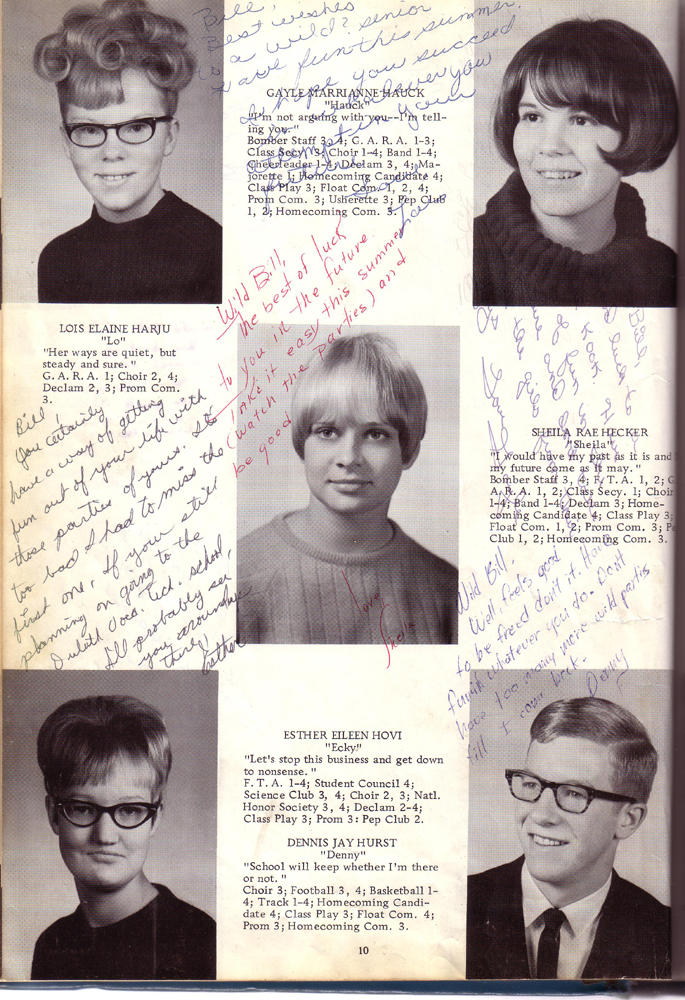 Bill,
Best wishes
to a wild? senior
Have fun this summer.
I hope you succeed
in whatever you
your
future
GAYLE MARRIANNE HAUCK
"Hauck"
"I'm not arguing with you--I'm tell-
ing you."
Bomber Staff 3, 4; G. A. R. A. 1-3;
Class Secy. 3; Choir 1-4; Band 1-4;
Cheerleader 1-4; Declam 3, 4; Ma-
jorette 1; Homecoming Candidate 4;
Class Play 3; Float Com. 1, 2, 4;
Prom Com. 3; Usherette 3; Pep Club
1, 2; Homecoming Com. 3.
Wild Bill,
The best of luck
to you in the future.
Take it easy this summer
(watch the parties) and
be good
love
Sheila
LOIS ELAINE HARJU
"Lo"
"Her ways are quiet, but
steady and sure. "
G. A. R. A. 1; Choir 2, 4;
Declam 2, 3; Prom Com.
3.
Bill,
You certainly
have a way of getting
fun out of your life with
those parties of yours. It's
too bad I had to miss the
first one. If your still
planning on going to the
Duluth Voca. Tech. school,
I'll probably see
you around up
there!
Esther
Bill
SHEILA RAE HECKER
"Sheila"
"I would have my past as it is and
my future come as it may. "
Bomber Staff 3, 4; F. T. A. 1, 2; G.
A. R. A. 1, 2; Class Secy. 1; Choir
1-4; Band 1-4; Declam 3; Home-
coming Candidate 4; Class Play 3;
Float Com. 1, 2; Prom Com. 3; Pe
Club 1, 2; Homecoming Com. 3.
Wild Bill,
Well feels good
to be freed don't it. Have
fun in whatever you do. Don't
have too many more wild parties
till I come back.
Denny
ESTHER EILEEN HOVI
"Ecky"
"Let's stop this business and get down
to nonsense. "
F. T. A. 1-4; Student Council 4;
Science Club 3, 4; Choir 2, 3; Natl.
Honor Society 3, 4; Declam 2-4;
Class Play 3; Prom 3: Pep Club 2.
DENNIS JAY HURST
"Denny"
"School will keep whether I'm there
or not. "
Choir 3; Football 3, 4; Basketball 1-
4; Track 1-4; Homecoming Candi-
date 4; Class Play 3; Float Com. 4;
Prom 3; Homecoming Com. 3.
10